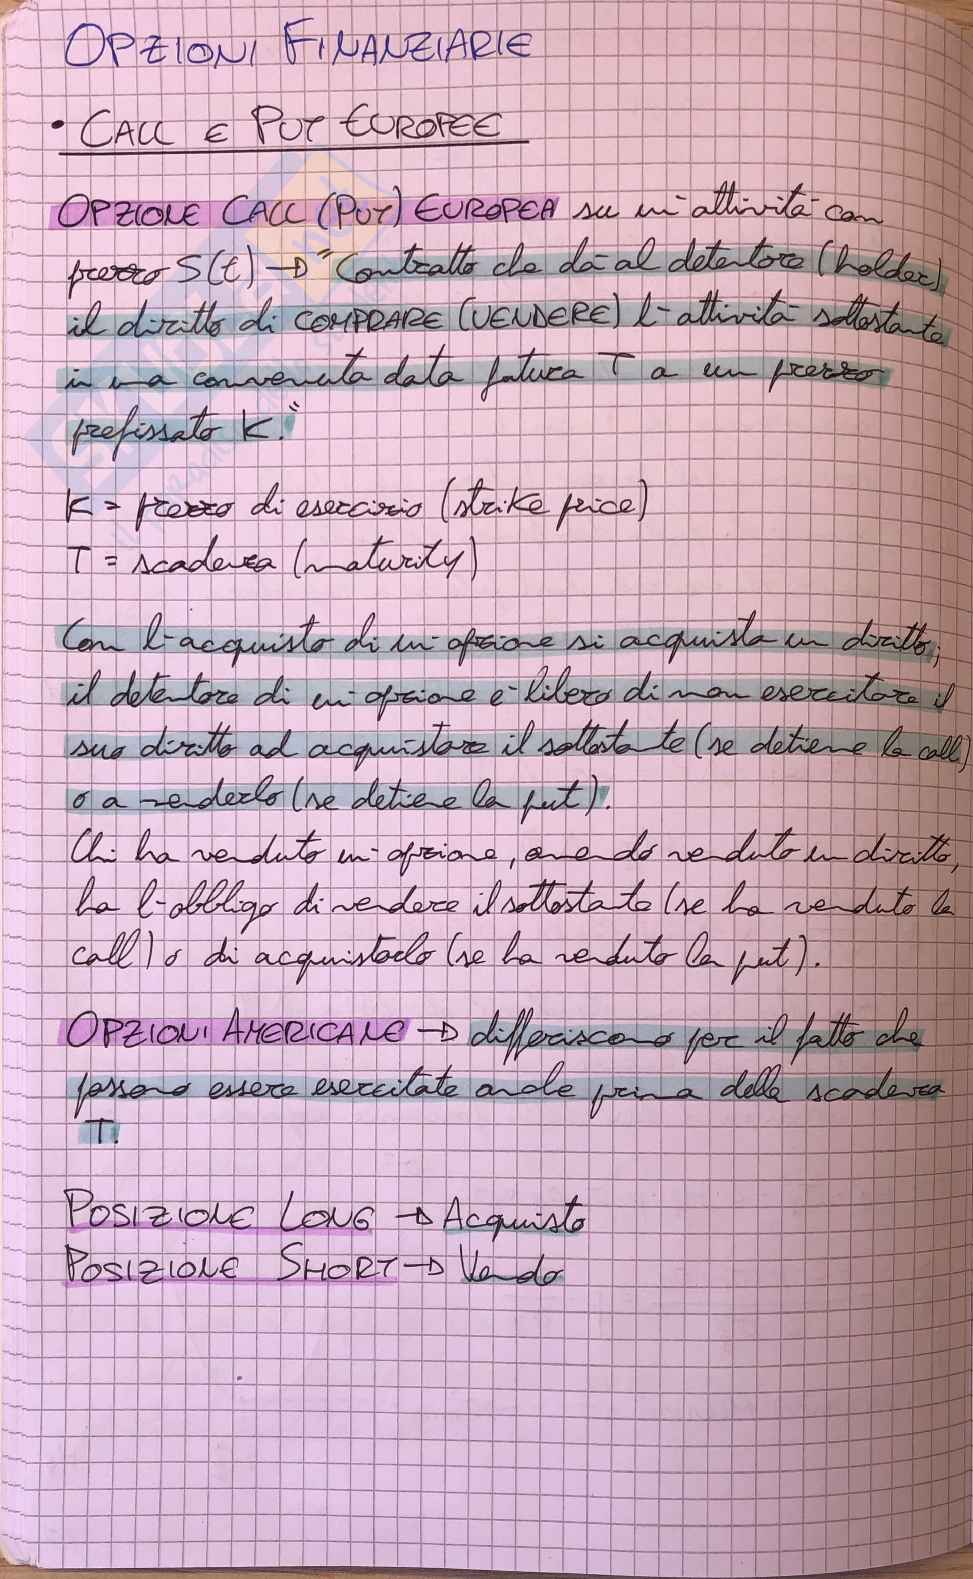 OPZIONI FINANZIARIE
• CALL E PUT EUROPEE
OPZIONE CALL (PUT) EUROPEA su un'attività con
prezzo S(t) → "Contratto che dà al detentore (holder)
il diritto di COMPRARE (VENDERE) l'attività sottostante
in una convenuta data futura T a un prezzo
prefissato K."
K = prezzo di esercizio (strike price)
T = scadenza (maturity)
Con l'acquisto di un'opzione si acquista un diritto;
il detentore di un'opzione è libero di non esercitare il
suo diritto ad acquistare il sottostante (se detiene la call)
o a venderlo (se detiene la put).
Chi ha venduto un'opzione, avendo venduto un diritto,
ha l'obbligo di vendere il sottostante (se ha venduto la
call) o di acquistarlo (se ha venduto la put).
OPZIONI AMERICANE → differiscono per il fatto che
possono essere esercitate anche prima della scadenza
T.
POSIZIONE LONG → Acquisto
POSIZIONE SHORT → Vendo